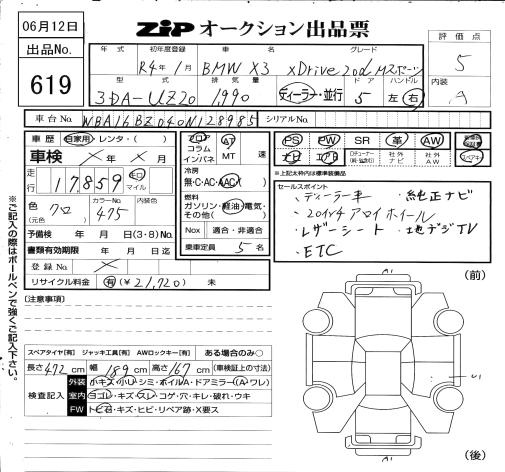 06月12日
ZIP オークション出品票
出品No.
619
評価点
5
内装
A
年式 初年度登録 車名 グレード
R4年1月 BMW X3 xDrive20d Mスポーツ
型式 排気量 ドア ハンドル
3DA-UZ20 1,990 ディーラー・並行 5 左 右
車台No. WBA16BZ040N128985 シリアルNo.
車歴 自家用・レンタ・( )
車検 × 年 × 月
走行 17,859 キロ マイル
色 クロ (元色) カラーNo. 475 内装色
予備検 年 月 日(3・8)No.
書類有効期限 年 月 日
登録No. ×
リサイクル料金 有(¥ 21,720) 未
フロア コラム インパネ AT MT 速
冷房
無・C・AC・AAC( )
燃料
ガソリン・軽油・電気・その他( )
Nox 適合・非適合
乗車定員 5 名
PS PW SR 革 AW
ナビ エアB 社外ナビ 社外AW スペアキー
※上記太枠内は標準装備品
セールスポイント
・ディーラー車 ・純正ナビ
・20インチアロイホイール
・レザーシート ・地デジTV
・ETC
※ご記入の際はボールペンで強くご記入下さい。
[注意事項]
スペアタイヤ[有] ジャッキ工具[有] AWロックキー[有] ある場合のみ○
長さ 472 cm 幅 189 cm 高さ 167 cm (車検証上の寸法)
検査記入
外装 小キズ・小U・シミ・ホイルA・ドアミラー(A・ワレ)
室内 ヨゴレ・キズ・スレ・コゲ・穴・キレ・破れ・ウキ
FW トビ石・キズ・ヒビ・リペア跡・X要ス
(前)
(後)